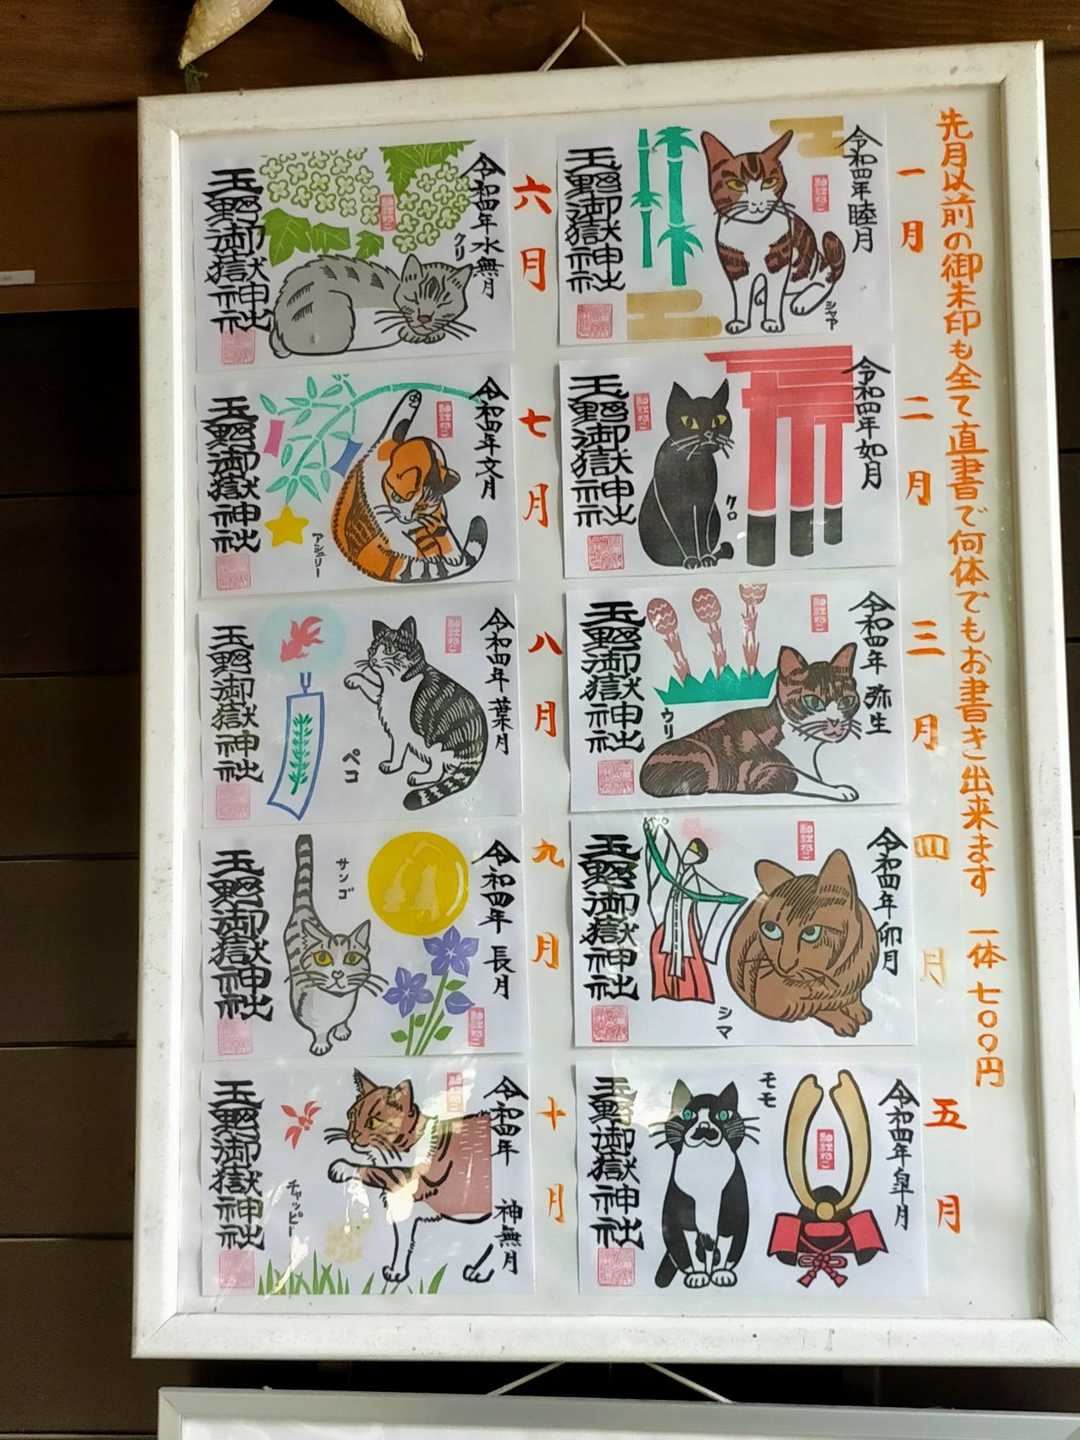 先月以前の御朱印も全て直書で何体でもお書き出来ます 一体七〇〇円
一月
令和四年睦月
シャア
玉野御嶽神社
二月
令和四年如月
クロ
玉野御嶽神社
三月
令和四年 弥生
ウリ
玉野御嶽神社
四月
令和四年卯月
シマ
玉野御嶽神社
五月
令和四年皐月
モモ
玉野御嶽神社
六月
令和四年水無月
クリ
玉野御嶽神社
七月
令和四年文月
アシュリー
玉野御嶽神社
八月
令和四年 葉月
ペコ
玉野御嶽神社
九月
令和四年 長月
サンゴ
玉野御嶽神社
十月
令和四年 神無月
チャッピー
玉野御嶽神社